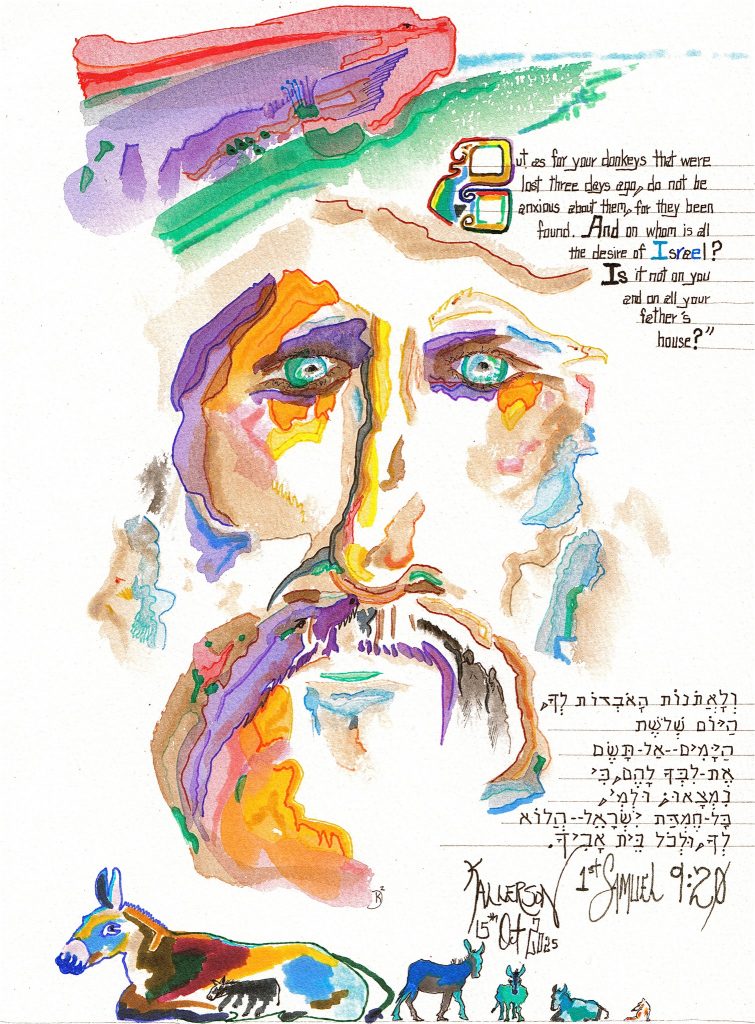 But as for your donkeys that were
lost three days ago, do not be
anxious about them, for they been
found. And on whom is all
the desire of Israel?
Is it not on you
and on all your
father's
house?”
וְלָאֲתֹנוֹת הָאֹבְדוֹת לְךָ,
הַיּוֹם שְׁלֹשֶׁת
הַיָּמִים--אַל-תָּשֶׂם
אֶת-לִבְּךָ לָהֶם, כִּי
נִמְצָאוּ; וּלְמִי,
כָּל-חֶמְדַּת יִשְׂרָאֵל--הֲלוֹא
לְךָ, וּלְכֹל בֵּית אָבִיךָ.
1st Samuel 9:20
15th Oct